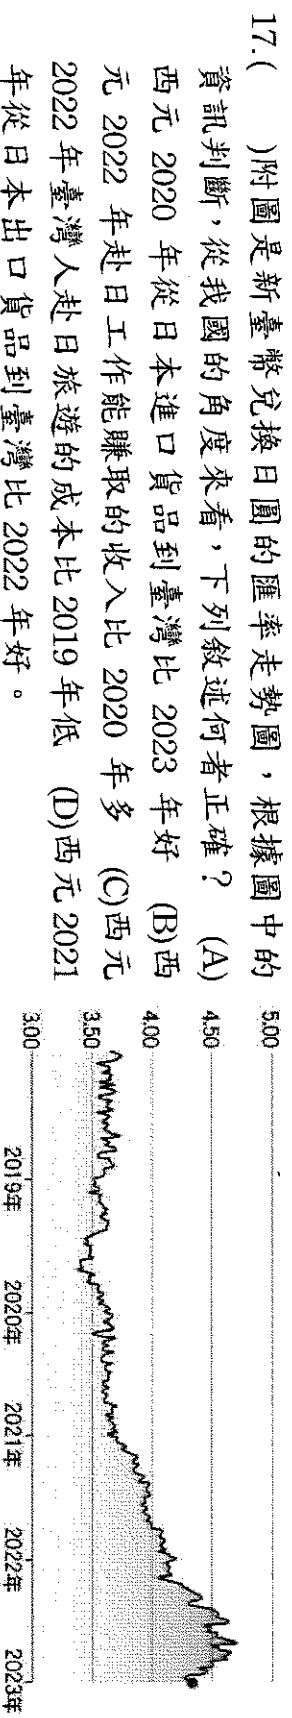 17.(　　)附圖是新臺幣兌換日圓的匯率走勢圖，根據圖中的
資訊判斷，從我國的角度來看，下列敘述何者正確？ (A)
西元 2020 年從日本進口貨品到臺灣比 2023 年好 (B)西
元 2022 年赴日工作能賺取的收入比 2020 年多 (C)西元
2022 年臺灣人赴日旅遊的成本比 2019 年低 (D)西元 2021
年從日本出口貨品到臺灣比 2022 年好。
5.00
4.50
4.00
3.50
3.00
2019年 2020年 2021年 2022年 2023年